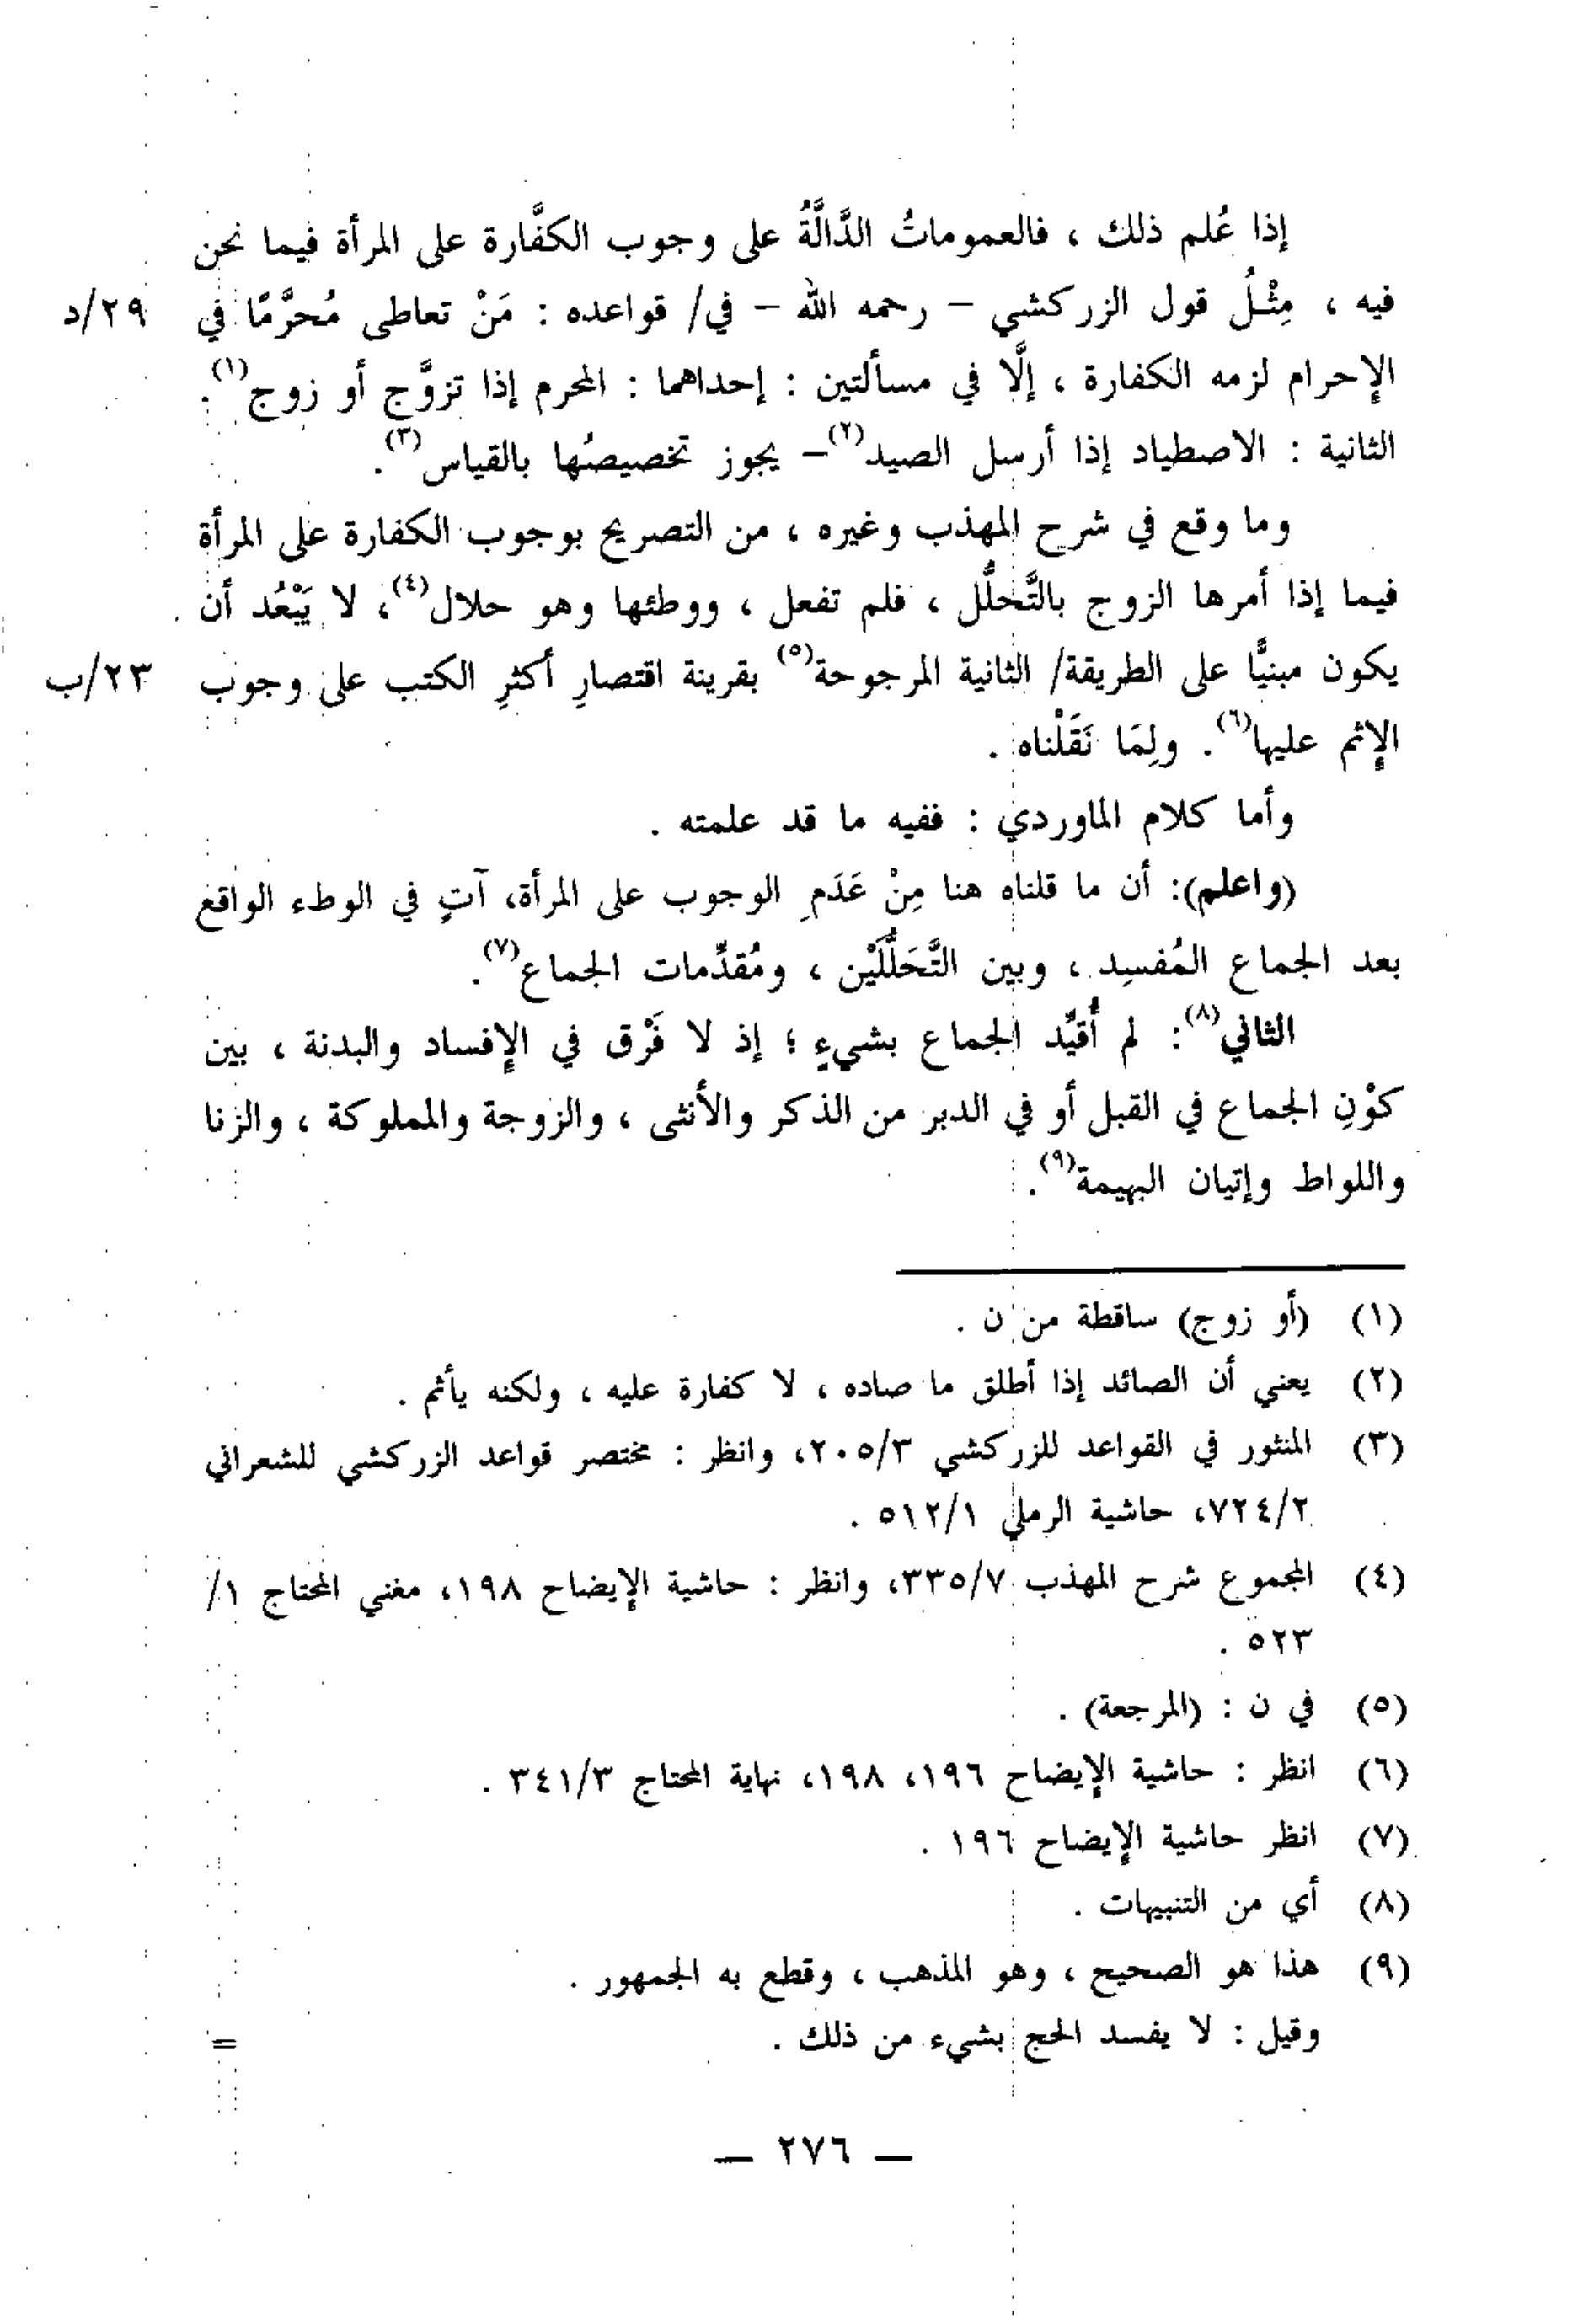 إذا عُلم ذلك ، فالعموماتُ الدَّالَّةُ على وجوب الكفَّارة على المرأة فيما نحن
فيه ، مِثْلُ قول الزركشي – رحمه الله – في/ قواعده : مَنْ تعاطى مُحرَّمًا في ٢٩/د
الإحرام لزمه الكفارة ، إلَّا في مسألتين : إحداهما : المحرم إذا تزوَّج أو زوج(١).
الثانية : الاصطياد إذا أرسل الصيد(٢)– يجوز تخصيصُها بالقياس(٣).
وما وقع في شرح المهذب وغيره ، من التصريح بوجوب الكفارة على المرأة
فيما إذا أمرها الزوج بالتَّحلُّل ، فلم تفعل ، ووطئها وهو حلال(٤)، لا يَبْعُد أن
يكون مبنيًّا على الطريقة/ الثانية المرجوحة(٥) بقرينة اقتصارِ أكثرِ الكتب على وجوب ٢٣/ب
الإثم عليها(٦). ولِمَا نَقَلْناه .
وأما كلام الماوردي : ففيه ما قد علمته .
(واعلم): أن ما قلناه هنا مِنْ عَدَمِ الوجوب على المرأة، آتٍ في الوطء الواقع
بعد الجماع المُفسِد ، وبين التَّحَلُّلَيْن ، ومُقدِّمات الجماع(٧).
الثاني(٨): لم أُقيِّد الجماع بشيءٍ ؛ إذ لا فَرْق في الإفساد والبدنة ، بين
كوْنِ الجماع في القبل أو في الدبر من الذكر والأنثى ، والزوجة والمملوكة ، والزنا
واللواط وإتيان البهيمة(٩).
(١) (أو زوج) ساقطة من ن .
(٢) يعني أن الصائد إذا أطلق ما صاده ، لا كفارة عليه ، ولكنه يأثم .
(٣) المنثور في القواعد للزركشي ٢٠٥/٣، وانظر : مختصر قواعد الزركشي للشعراني
٧٢٤/٢، حاشية الرملي ٥١٢/١ .
(٤) المجموع شرح المهذب ٣٣٥/٧، وانظر : حاشية الإيضاح ١٩٨، مغني المحتاج ١/
٥٢٣ .
(٥) في ن : (المرجعة) .
(٦) انظر : حاشية الإيضاح ١٩٦، ١٩٨، نهاية المحتاج ٣٤١/٣ .
(٧) انظر حاشية الإيضاح ١٩٦ .
(٨) أي من التنبيهات .
(٩) هذا هو الصحيح ، وهو المذهب ، وقطع به الجمهور .
وقيل : لا يفسد الحج بشيء من ذلك . =
— ٢٧٦ —